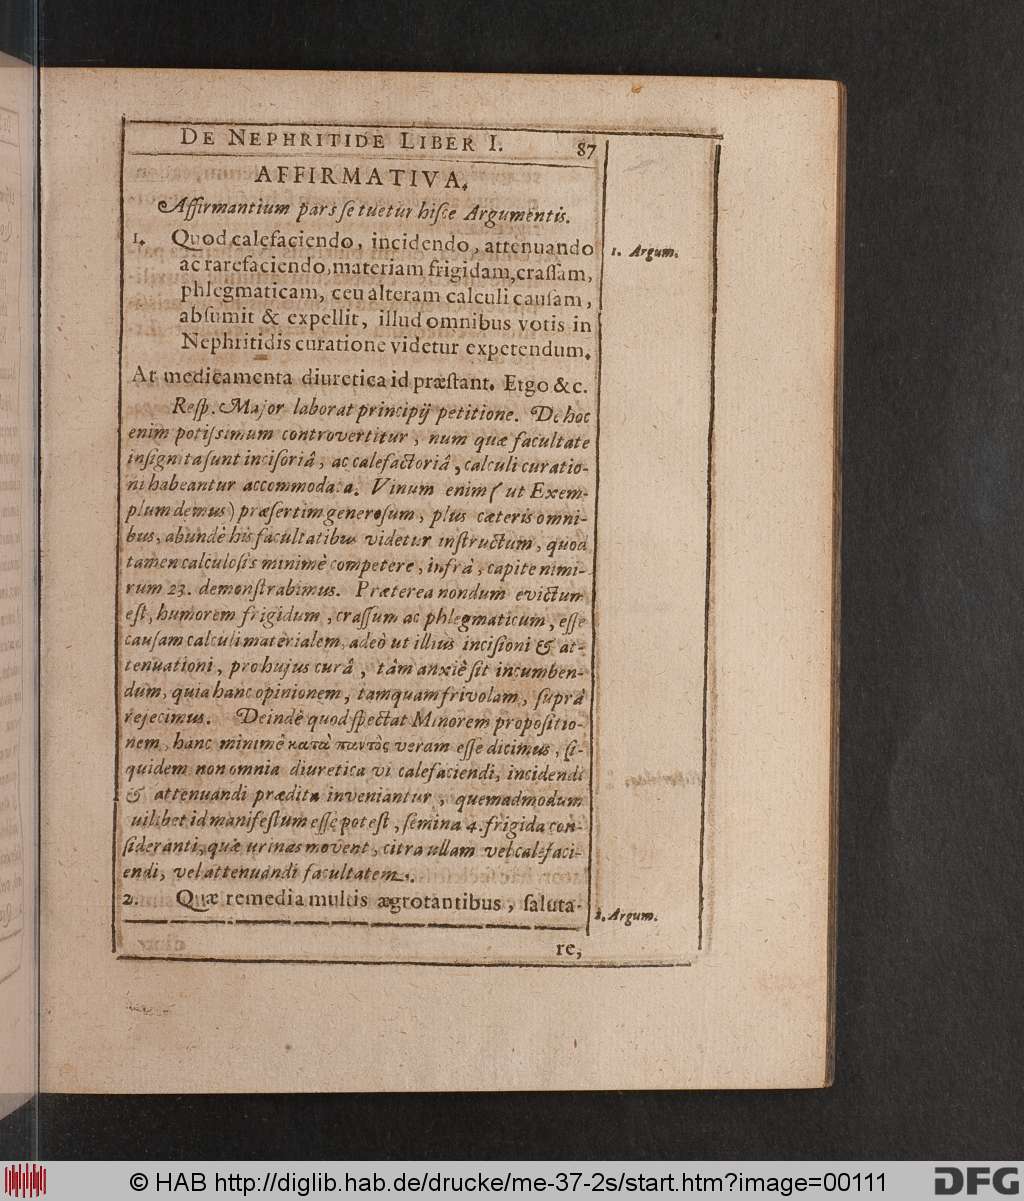 DE NEPHRITIDE LIBER I. 87
AFFIRMATIVA.
Affirmantium pars se tuetur hisce Argumentis.
1. Quod calefaciendo, incidendo, attenuando
1. Argum.
ac rarefaciendo, materiam frigidam, crassam,
phlegmaticam, ceu alteram calculi causam,
absumit & expellit, illud omnibus votis in
Nephritidis curatione videtur expetendum.
At medicamenta diuretica id præstant. Ergo &c.
Resp. Major laborat principij petitione. De hoc
enim potissimum controvertitur, num quæ facultate
insignita sunt incisoriâ, ac calefactoriâ, calculi curatio-
ni habeantur accommodata. Vinum enim (ut Exem-
plum demus) præsertim generosum, plus cæteris omni-
bus, abundè his facultatibus videtur instructum, quod
tamen calculosis minimè competere, infrà, capite nimi-
rum 23. demonstrabimus. Præterea nondum evictum
est, humorem frigidum, crassum ac phlegmaticum, esse
causam calculi materialem, adeò ut illius incisioni & at-
tenuationi, pro hujus curâ, tàm anxiè sit incumben-
dum, quia hanc opinionem, tamquam frivolam, suprà
rejecimus. Deindè quod spectat Minorem propositio-
nem, hanc minimè κατὰ παντὸς veram esse dicimus, si-
quidem non omnia diuretica vi calefaciendi, incidendi
& attenuandi prædita inveniantur, quemadmodum
uilibet id manifestum esse potest, semina 4. frigida con-
sideranti, quæ urinas movent, citra ullam vel calefaci-
endi, vel attenuandi facultatem.
2. Quæ remedia multis ægrotantibus, saluta-
2. Argum.
re,
© HAB http://diglib.hab.de/drucke/me-37-2s/start.htm?image=00111
DFG